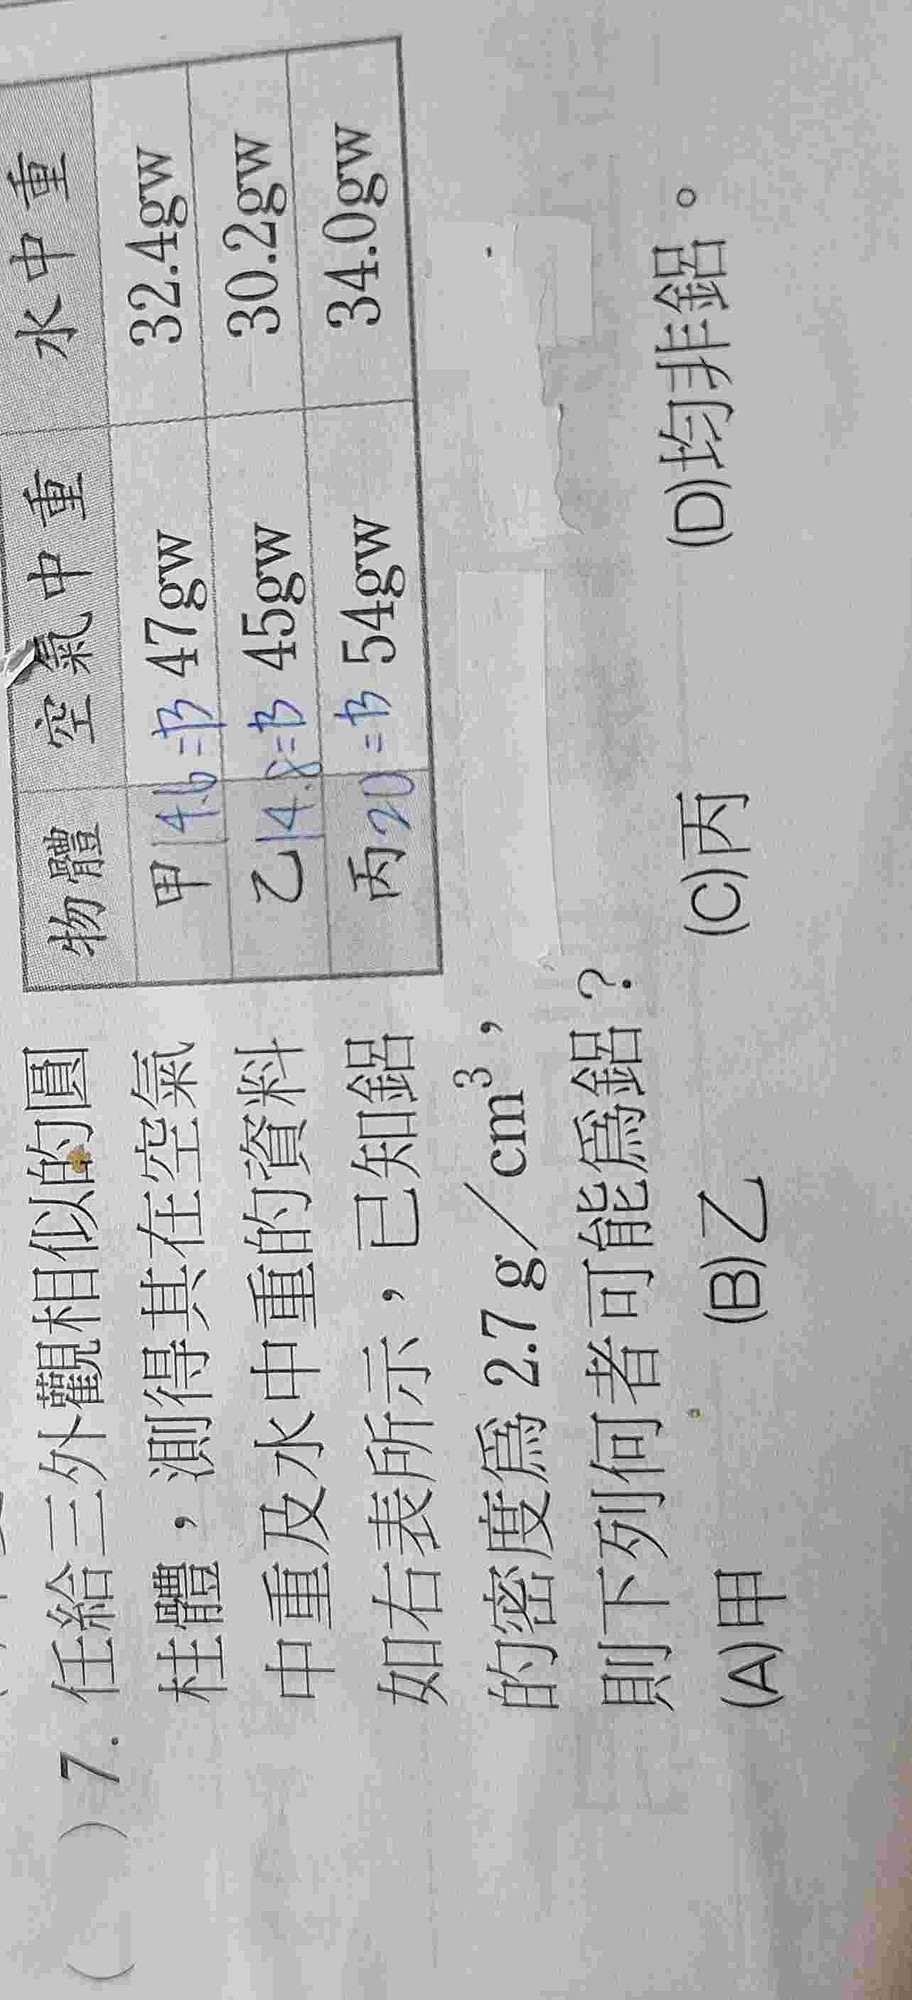 ( ) 7. 任給三外觀相似的圓
柱體，測得其在空氣
中重及水中重的資料
如右表所示，已知鋁
的密度為 2.7 g／cm³，
則下列何者可能為鋁？
(A)甲 (B)乙 (C)丙 (D)均非鋁。
物體 空氣中重 水中重
甲 14.6=B 47gw 32.4gw
乙 14.8=B 45gw 30.2gw
丙 20=B 54gw 34.0gw